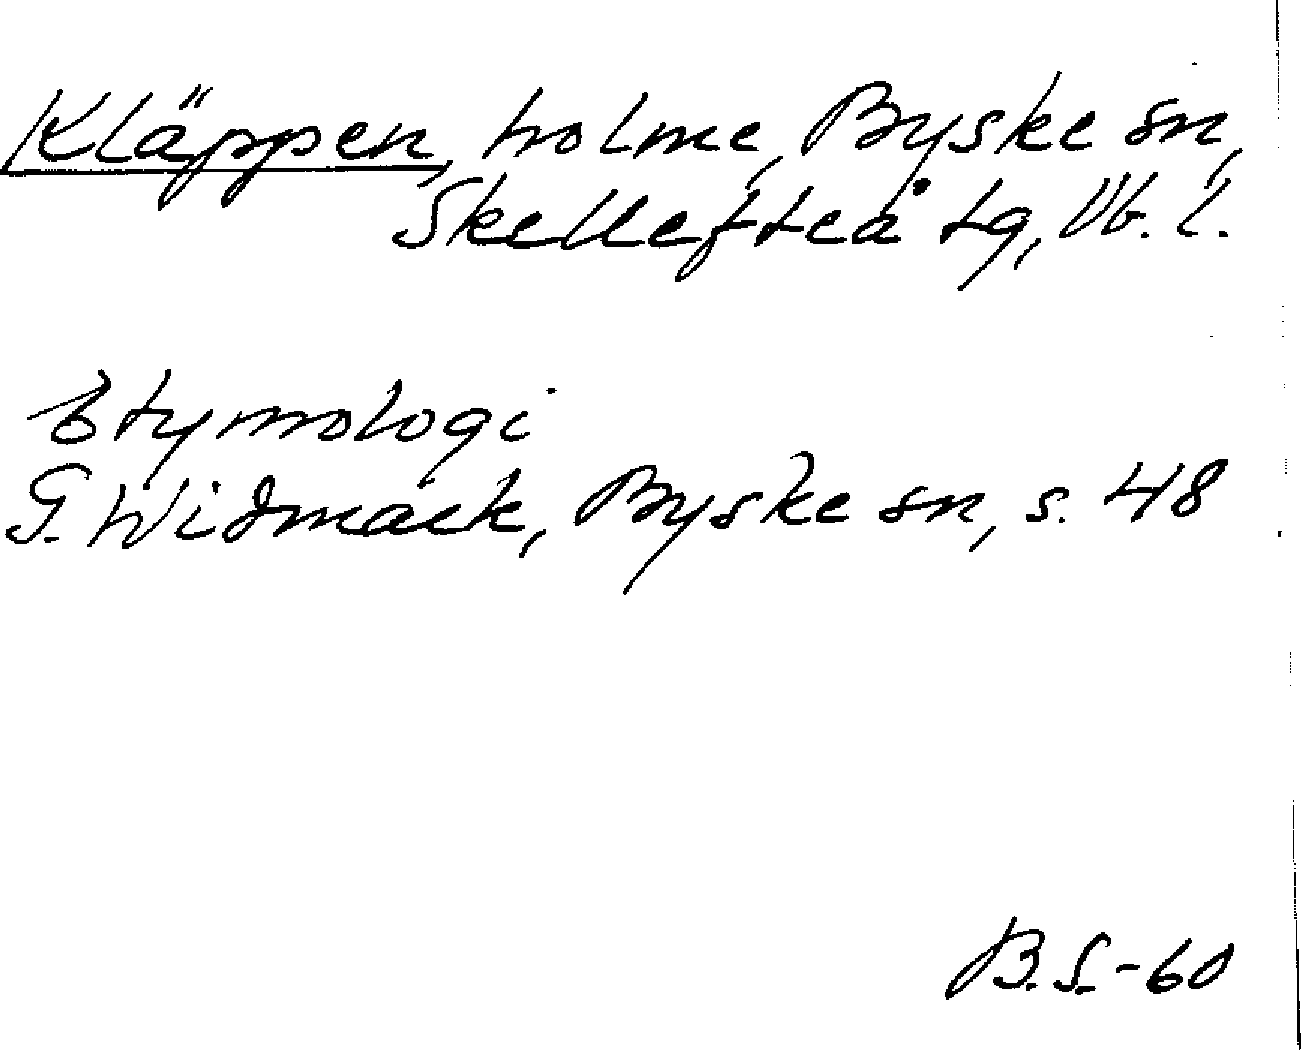 Kläppen, holme, Byske sn,
Skellefteå tg, Vb. l.
Etymologi
G. Widmark, Byske sn, s. 48
B.S.-60